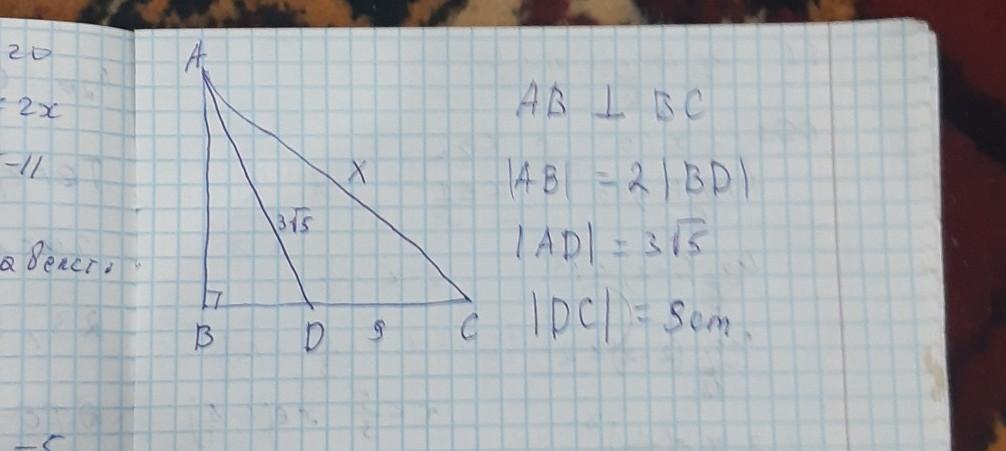 20
= 2x
-11
A
X
3√5
B
D
5
C
AB ⊥ BC
|AB| = 2 |BD|
|AD| = 3√5
|DC| = 5cm.